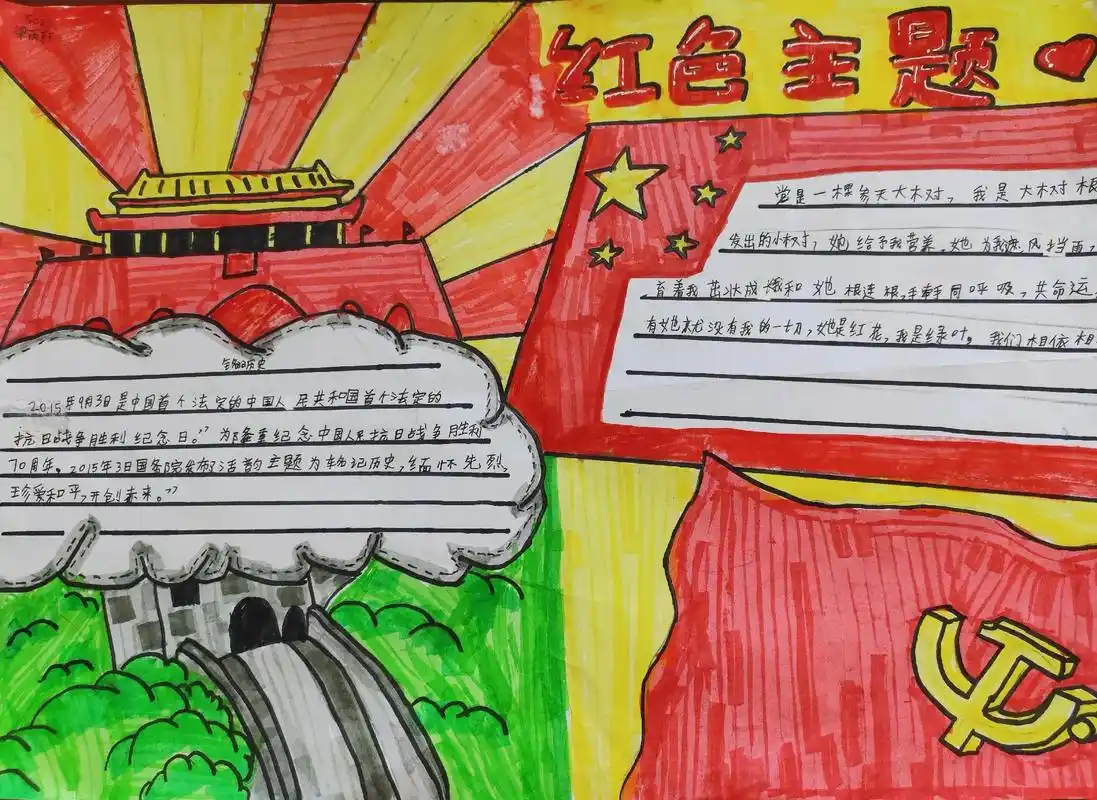 505
红色主题
党是一棵参天大树,我是大树根
发出的小树,她给予我营养,她为我遮风挡雨,
育着我茁壮成长和她根连根,手牵同呼吸,共命运
有她就没有我的一切,她是红花,我是绿叶。我们相依相
的历史
2015年9月3日是中国首个法定的中国人民共和国首个法定的
抗日战争胜利纪念日。”为隆重纪念中国人民抗日战争胜利
70周年。2015年3日国务院发布活动主题为铭记历史,缅怀先烈,
珍爱和平,开创未来。”